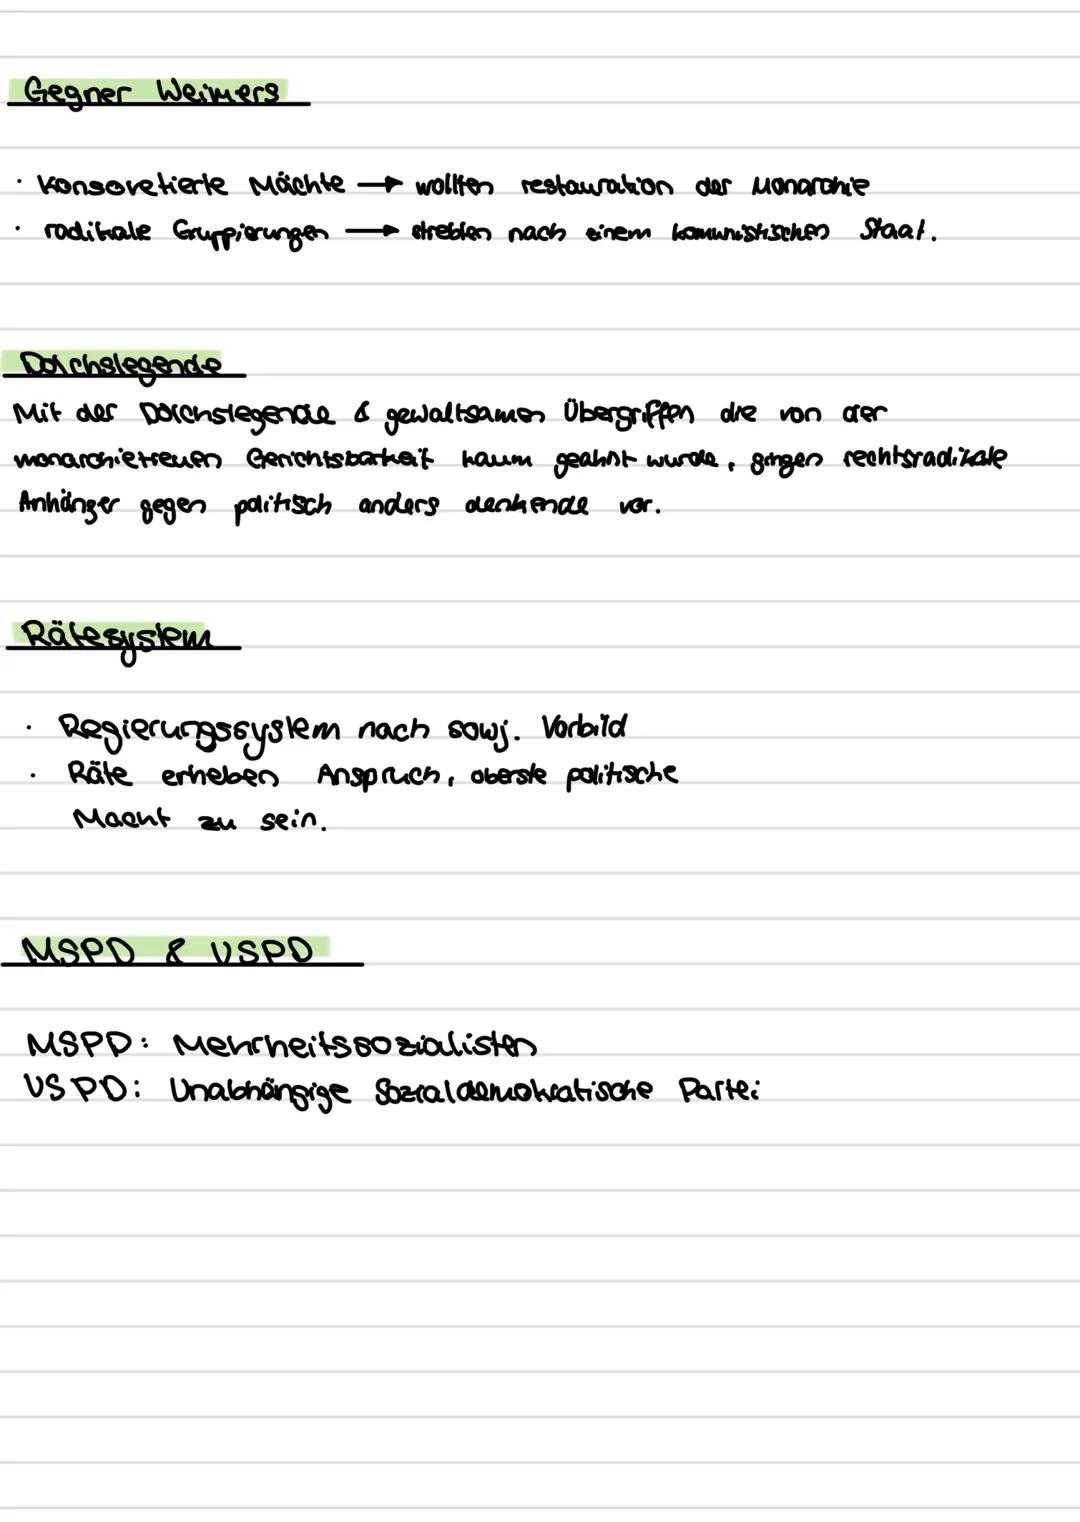 Gegner Weimers
· Konsovetierte Mächte → wollten restauration der Monarchie
· radikale Gruppierungen → strebten nach einem kommunistischen Staat.
Dolchslegende
Mit der Dolchslegende & gewaltsamen Übergriffen die von der
monarchietreuen Gerichtsbarkeit kaum geahnt wurde, gingen rechtsradikale
Anhänger gegen politisch anders denkende vor.
Rätesystem
· Regierungssystem nach sowj. Vorbild
· Räte erheben Anspruch, oberste politische
Macht zu sein.
MSPD & USPD
MSPD: Mehrheitssozialisten
USPD: Unabhängige Sozialdemokratische Partei